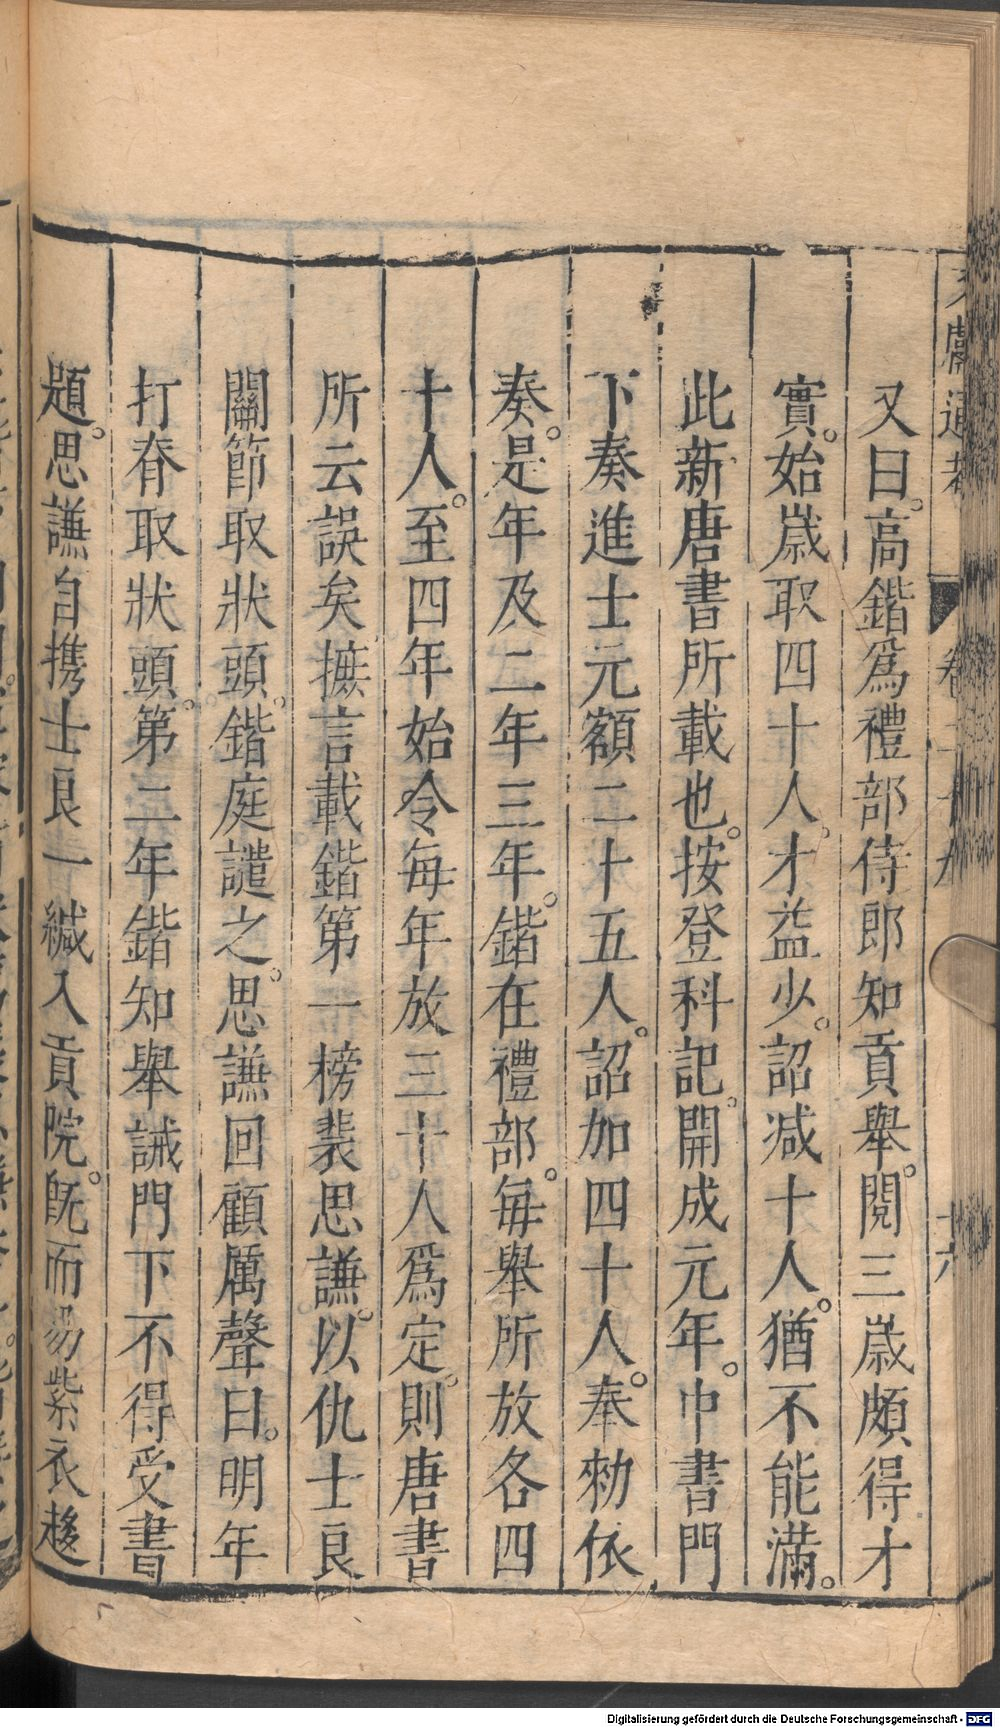 又曰。高鍇爲禮部侍郎知貢舉。閱三歲頗得才
實。始歲取四十人才益少。詔减十人。猶不能滿。
此新唐書所載也。按登科記。開成元年。中書門
下奏進士元額二十五人。詔加四十人。奉勑依
奏。是年及二年三年。鍇在禮部。每舉所放各四
十人。至四年始令每年放三十人爲定。則唐書
所云誤矣摭言載鍇第一榜裴思謙。以仇士良
關節取狀頭。鍇庭譴之。思謙回顧厲聲曰。明年
打脊取狀頭。第二年鍇知舉誡門下不得受書
題。思謙自携士良一緘入貢院。旣而易紫衣趍
文獻通考 卷二十九 十六
Digitalisierung gefördert durch die Deutsche Forschungsgemeinschaft - DFG